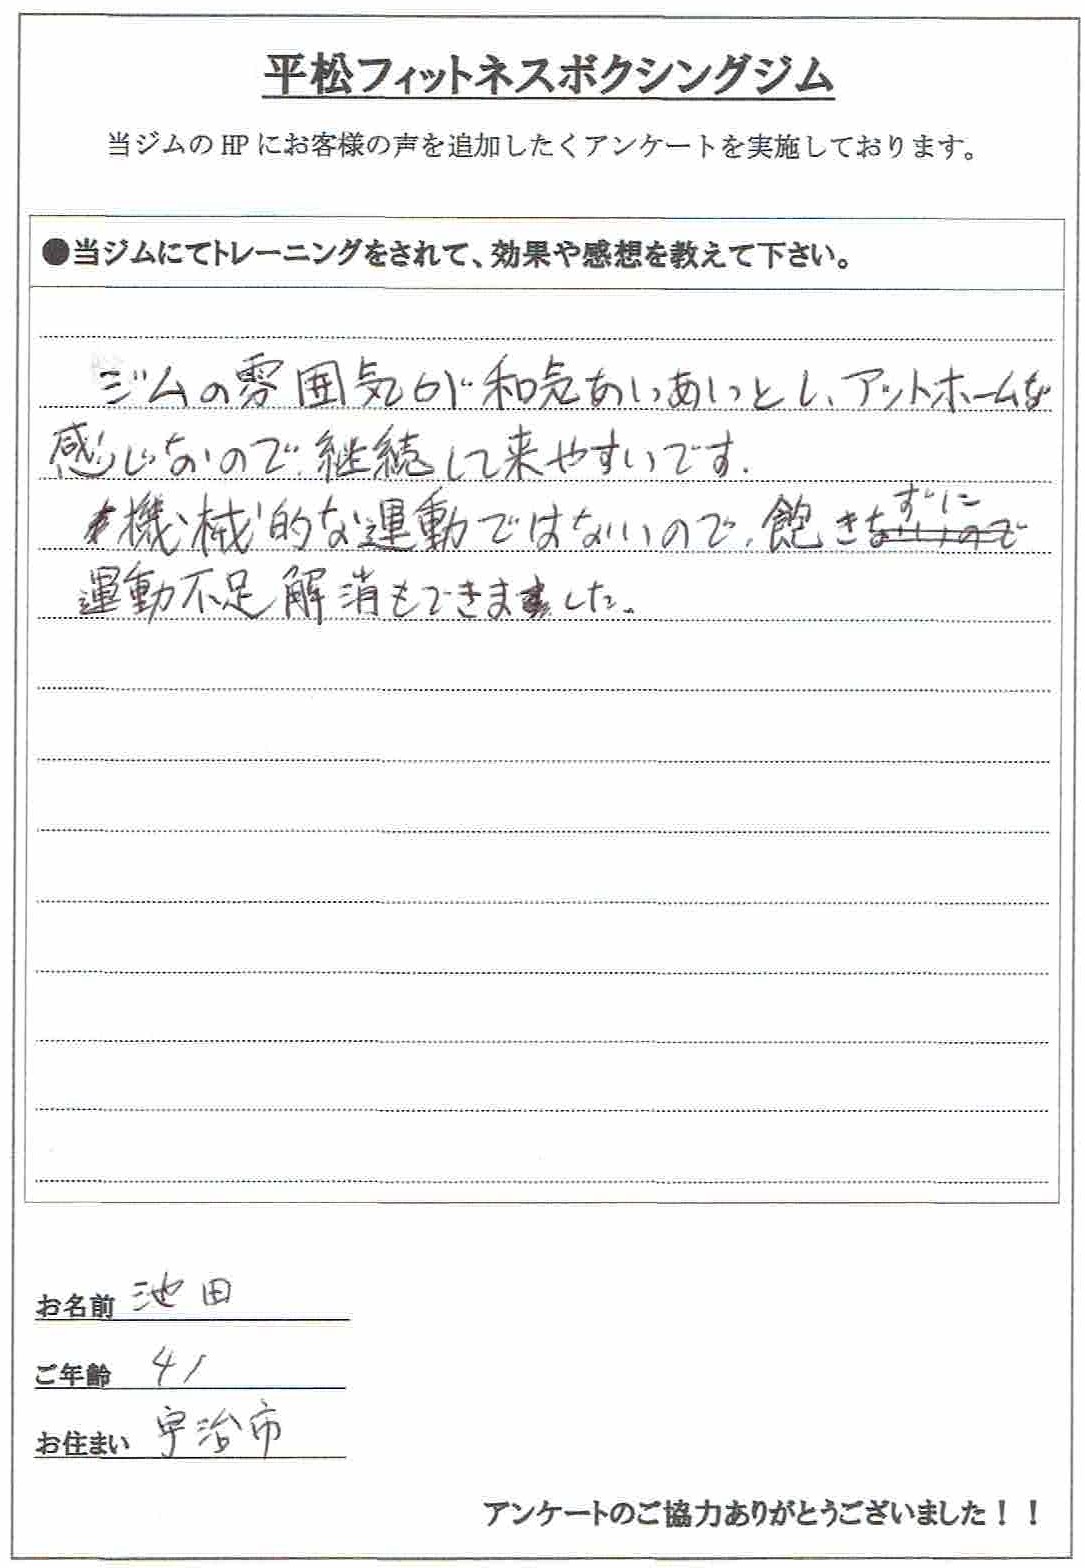 平松フィットネスボクシングジム
当ジムの HP にお客様の声を追加したくアンケートを実施しております。
●当ジムにてトレーニングをされて、効果や感想を教えて下さい。
ジムの雰囲気が和気あいあいとし、アットホームな
感じなので、継続して来やすいです.
機械的な運動ではないので、飽きずに
運動不足解消もできました。
お名前 池田
ご年齢 41
お住まい 宇治市
アンケートのご協力ありがとうございました！！